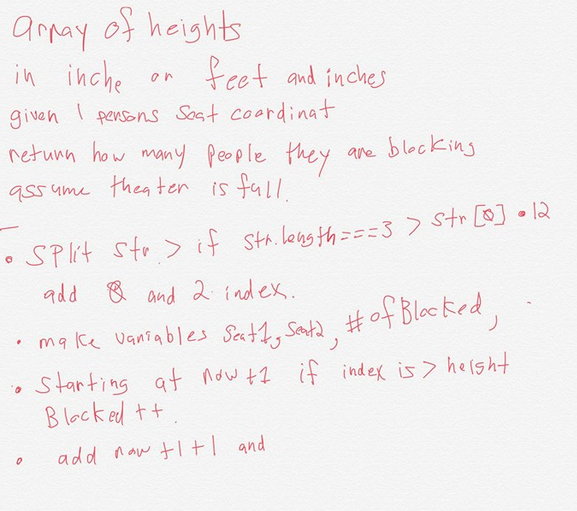 array of heights
in inche or feet and inches
given 1 persons Seat coordinat
return how many people they are blocking
assume theater is full.
• Split str. > if str.length===3 > str[0] • 12
add 0 and 2 index.
• make variables Seat1, Seat2, # of Blocked,
• Starting at row +1 if index is > height
Blocked ++.
• add row +1+1 and